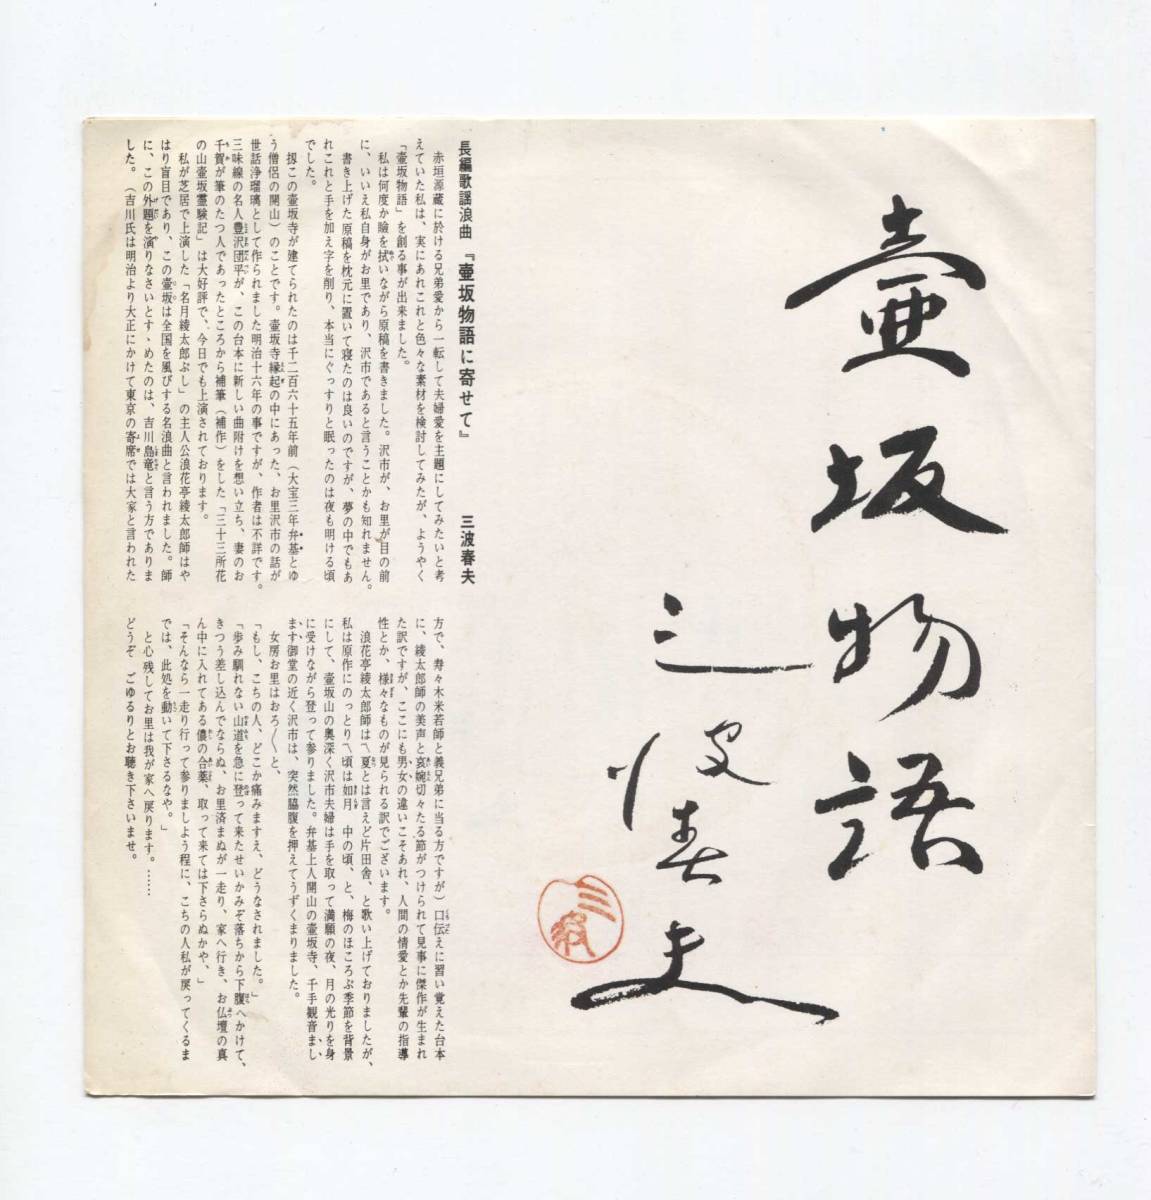 壷坂物語
三波春夫
三波
長編歌謡浪曲『壷坂物語に寄せて』 三波春夫
赤垣源蔵に於ける兄弟愛から一転して夫婦愛を主題にしてみたいと考
えていた私は、実にあれこれと色々な素材を検討してみたが、ようやく
「壷坂物語」を創る事が出来ました。
私は何度か瞼を拭いながら原稿を書きました。沢市が、お里が目の前
に、いいえ私自身がお里であり、沢市であると言うことかも知れません。
書き上げた原稿を枕元に置いて寝たのは良いのですが、夢の中でもあ
れこれと手を加え字を削り、本当にぐっすりと眠ったのは夜も明ける頃
でした。
扨この壷坂寺が建てられたのは千二百六十五年前（大宝三年弁基とゆ
う僧侶の開山）のことです。壷坂寺縁起の中にあった、お里沢市の話が
世話浄瑠璃として作られました明治十六年の事ですが、作者は不詳です。
三味線の名人豊沢団平が、この台本に新しい曲附けを想い立ち、妻のお
千賀が筆のたつ人であったところから補筆（補作）をした「三十三所花
の山壷坂霊験記」は大好評で、今日でも上演されております。
私が芝居で上演した「名月綾太郎ぶし」の主人公浪花亭綾太郎師はや
はり盲目であり、この壷坂は全国を風びする名浪曲と言われました。師
に、この外題を演りなさいとすゝめたのは、吉川島竜と言う方でありま
した。（吉川氏は明治より大正にかけて東京の寄席では大家と言われた
方で、寿々木米若師と義兄弟に当る方ですが）口伝えに習い覚えた台本
に、綾太郎師の美声と哀婉切々たる節がつけられて見事に傑作が生まれ
た訳ですが、ここにも男女の違いこそあれ、人間の情愛とか先輩の指導
性とか、様々なものが見られる訳でございます。
浪花亭綾太郎師は〽夏とは言えど片田舎、と歌い上げておりましたが、
私は原作にのっとり〽頃は如月 中の頃、と、梅のほころぶ季節を背景
にして、壷坂山の奥深く沢市夫婦は手を取って満願の夜、月の光りを身
に受けながら登って参りました。弁基上人開山の壷坂寺、千手観音まし
ます御堂の近く沢市は、突然脇腹を押えてうずくまりました。
女房お里はおろ〳〵と、
「もし、こちの人、どこか痛みますえ、どうなされました。」
「歩み馴れない山道を急に登って来たせいかみぞ落ちから下腹へかけて、
きつう差し込んでならぬ、お里済まぬが一走り、家へ行き、お仏壇の真
ん中に入れてある儂の合薬、取って来ては下さらぬかや、」
「そんなら一走り行って参りましよう程に、こちの人私が戻ってくるま
では、此処を動いて下さるなや。」
と心残してお里は我が家へ戻ります。……
どうぞ ごゆるりとお聴き下さいませ。